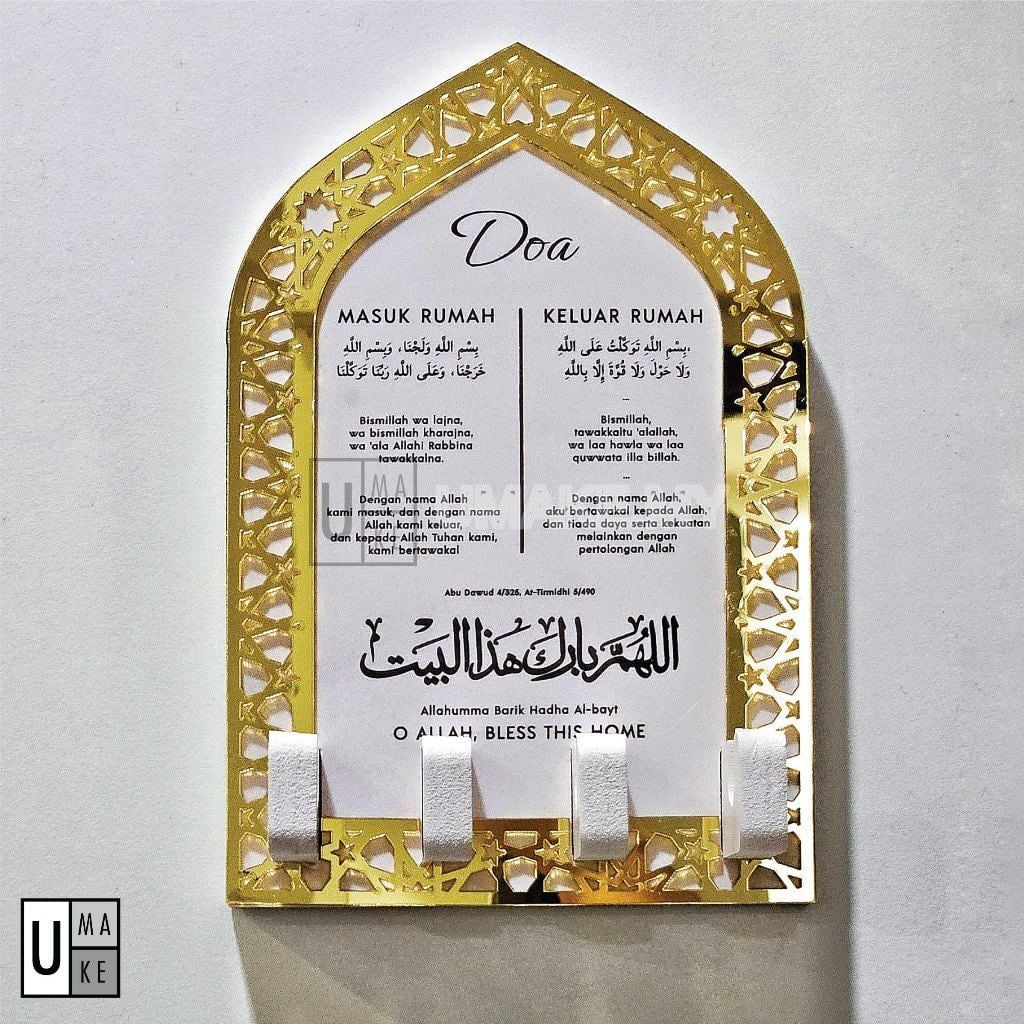 Doa
MASUK RUMAH
بِسْمِ اللَّهِ وَلَجْنَا، وَبِسْمِ اللَّهِ
خَرَجْنَا، وَعَلَى اللَّهِ رَبِّنَا تَوَكَّلْنَا
Bismillah wa lajna,
wa bismillah kharajna,
wa 'ala Allahi Rabbina
tawakkalna.
Dengan nama Allah
kami masuk, dan dengan nama
Allah kami keluar,
dan kepada Allah Tuhan kami,
kami bertawakal
KELUAR RUMAH
بِسْمِ اللَّهِ تَوَكَّلْتُ عَلَى اللَّهِ،
وَلَا حَوْلَ وَلَا قُوَّةَ إِلَّا بِاللَّهِ
...
Bismillah,
tawakkaltu 'alallah,
wa laa hawla wa laa
quwwata illa billah.
...
Dengan nama Allah,
aku bertawakal kepada Allah,
dan tiada daya serta kekuatan
melainkan dengan
pertolongan Allah
Abu Dawud 4/325, At-Tirmidhi 5/490
اللهُمَّ بَارِكْ هَذَا البَيْت
Allahumma Barik Hadha Al-bayt
O ALLAH, BLESS THIS HOME
U MA
KE